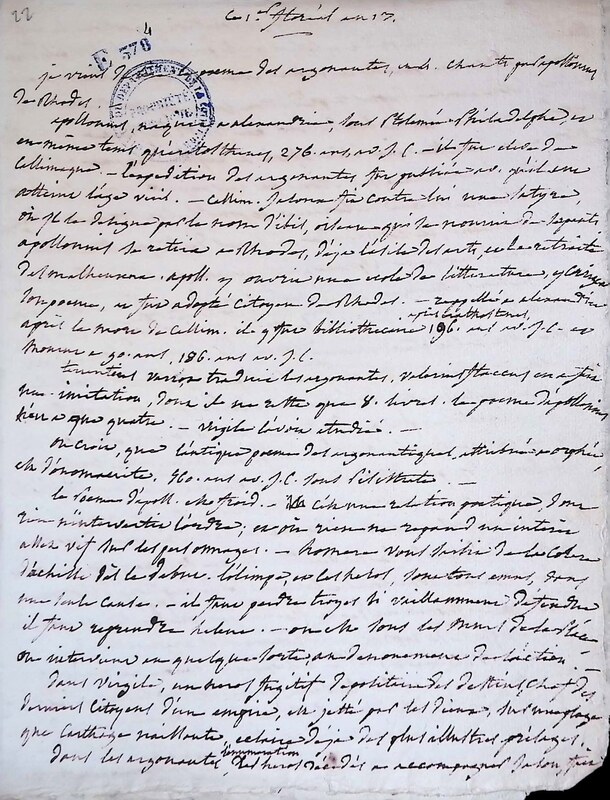 22
ce 1er floréal an 13.
4
E 378
je viens de le poeme des argonautes, en 4. chants par apollonius
de Rhodes.
apollonius, naquit a alexandrie, sous Ptolemée Philadelphe et
en même tems qu'ératosthenes, 276. ans, av. J. C. - il fut eleve de
Callimaque. - l'expedition des argonautes fut publiée av. qu'il eut
atteint l'age viril. - Callim. jaloux fit contre lui une satyre,
où il le designe par le nom d'ibis, oiseau qui se nourrit de serpents
apollonius se retira a Rhodes, déja l'asile des arts, et la retraite
des malheureux. apoll. y ouvrit une ecole de litterature, y corrigea
son poeme, et fut adopté citoyen de Rhodes. - rappellé a alexandrie
après la mort de Callim. il y fut bibliothecaire après eratosthenes, 196. ans av. J. C. - et
mourut a 90. ans, 186. ans av. J. C.
terentius varron traduisit les argonautes, valerius flaccus en a fait
une imitation, dont il ne reste que 8. livres. le poeme d'apollonius
n'en a que quatre. - virgile l'avoit etudié. -
on croit, que l'antique poeme des argonautiques, attribué a orphée,
est d'onomacrite. 560. ans av. J. C. sous Pisistrate. -
le poeme d'apoll. est froid. - c'est une relation poetique, dont
rien n'intervertit l'ordre; et où rien ne repand un interêt
assez vif sur les personnages. - homere vous saisit de la colere
d'achille dès le debut. l'olimpe, et les heros, sont tous emus, dans
une seule cause. - il faut perdre troyes si vaillamment defendue
il faut reprendre helene. - on est sous les murs de la place
on intervient en quelque sorte, au denouement de l'action.
dans virgile, un heros fugitif depositaire des destins, chef des
derniers citoyens d'un empire, est jetté par les dieux, sur une plage
que carthage naissante, eclaire déja des plus illustres présages.
dans les argonautes, l'enumeration des heros décidés a accompagner Jason, fait